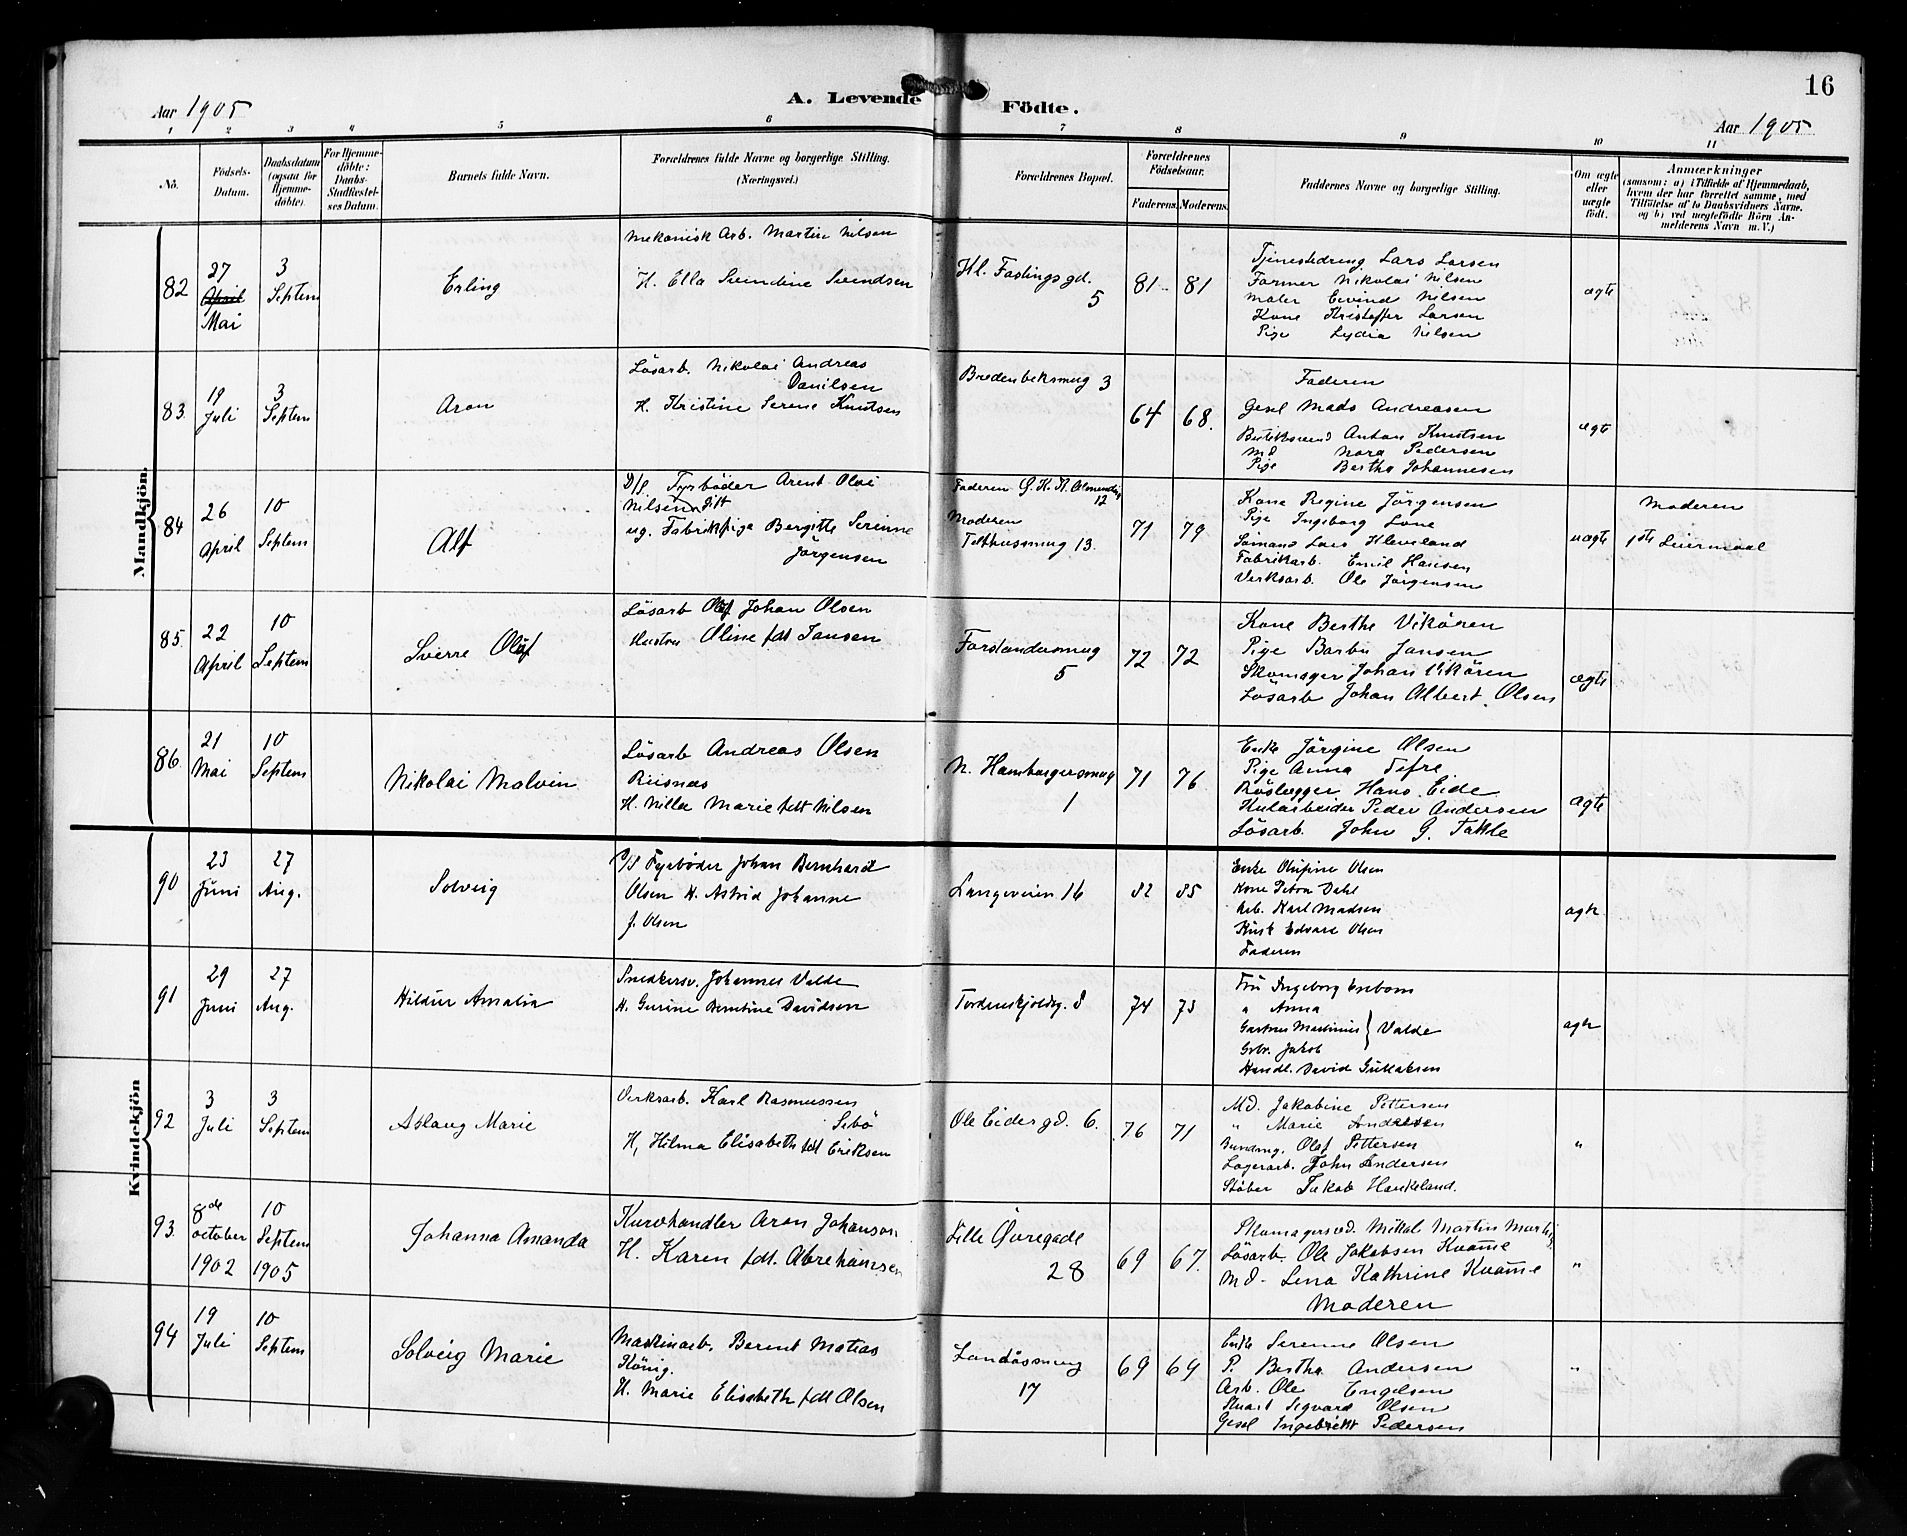 16
Aar 1905
A. Levende Födte.
Aar 1905
1 2 3 4 5 6 7 8 9 10 11
No.
Födsels-Datum.
Daabsdatum (ogsaa for Hjemme-döbte).
For Hjemme-döbte: Daabs-Stadfæstel-ses Datum.
Barnets fulde Navn.
Forældrenes fulde Navne og borgerlige Stilling.
(Næringsvei.)
Forældrenes Bopæl.
Forældrenes Födselsaar.
Faderens. Moderens.
Faddernes Navne og borgerlige Stilling.
Om ægte eller uægte födt.
Anmærkninger
(saasom: a) i Tilfælde af Hjemmedaab,
hvem der har forrettet samme, med
Tilföielse af to Daabsvidners Navne.
og b) ved uægtefödte Börn An-
melderens Navn m. V.)
Mandkjön.
82
27 April Mai
3 Septem
Erling
Mekanisk Arb. Martin Nilsen
H. Ella Svendine Svendsen
Kl. Fastingsgd. 5
81 81
Tjenestedreng Lars Larsen
Farmer Nikolai Nilsen
Maler Eivind Nilsen
Kone Kristoffer Larsen
Pige Lydia Nilsen
ægte
83.
19 Juli
3 Septem
Aron
Lösarb. Nikolai Andreas
Danilsen
H. Kristine Serene Knutsen
Bredenbeksmug 3
64 68.
Faderen
Gesel Mads Andreasen
Anton Knutsen
Md Nora Pedersen
Pige Bertha Johannesen
ægte
84
26 April
10 Septem
Alf
D/S. Fyrböder Arent Olai
Nilsen Gift
ug. Fabrikpige Bergitte Serinne
Jörgensen
Faderen G. K. N. Almending 12
Moderen
Telthussmug 13.
71 79
Kone Regine Jörgensen
Pige Ingeborg Lone
Sömand Lars Kleveland
Fabrikarb. Emil Hansen
Verksarb. Ole Jörgensen
uægte
Moderen
1ste Leiermaal
85.
22 April
10 Septem
Sverre Olaf
Lösarb Olaf Johan Olsen
Hustru Oline fdt Jansen
Forstandersmug
5
72 72
Kone Berthe Vikören
Pige Barbu Jansen
Skomager Johan Vikören
Lösarb Johan Albert Olsen
ægte
86
21 Mai
10 Septem
Nikolai Malvin
Lösarb Andreas Olsen
Riisnæs
H. Nilla Marie fdt Nilsen
N. Hamborgersmug
1
71 76
Enke Jörgine Olsen
Pige Anna Tefre
Rörlægger Hans Eide
Kularbeider Peder Andersen
Lösarb. John G. Takle
ægte
Kvindekjön
90
23 Juni
27 Aug.
Solveig
D/S Fyrböder Johan Bernhard
Olsen H. Astrid Johanne
J. Olsen
Langeveien 16
82 85
Enke Olufine Olsen
Kone Petra Dahl
Arb. Karl Madsen
Kusk Edvard Olsen
Faderen
ægte
91
29 Juni
27 Aug.
Hildur Amalia
Snedkersv. Johannes Valde
H. Gurine Berntine Davidsen
Tordenskjoldsg. 8
74 73
Fru Ingeborg
" Anna
Gartner Martinius } Valde
Grbr. Jakob
Handl. David Gullaksen
ægte
92
3 Juli
3 Septem
Aslaug Marie
Verksarb. Karl Rasmussen
Sebö
H, Hilma Elisabeth fdt Eriksen
Ole Eidesgd. 6.
76 71
Md. Jakobine Pettersen
" Marie Andresen
Olaf Pettersen
Lagerarb. John Andersen
Stöber Jakob Haukeland.
"
93.
8de october 1902
10 Septem 1905
Johanna Amanda
Kurvhandler Aron Johanson
H. Karen fdt. Abrehamsen
Lille Øvregade
28
69 67.
Skomagersvd. Mikal Martin
Lösarb. Ole Jakobsen Kvamme
Md. Lena Kathrine Kvamme
Moderen
"
94
19 Juli
10 Septem
Solveig Marie
Maskinarb. Berent Matias
König.
H. Marie Elisabeth fdt Olsen
Landåssmug
17
69 69
Enke Serenne Olsen
P. Bertha Andersen
Arb. Ole Engelsen
Stuart Segvard Olsen
Gesel Ingebrikt Pedersen
"